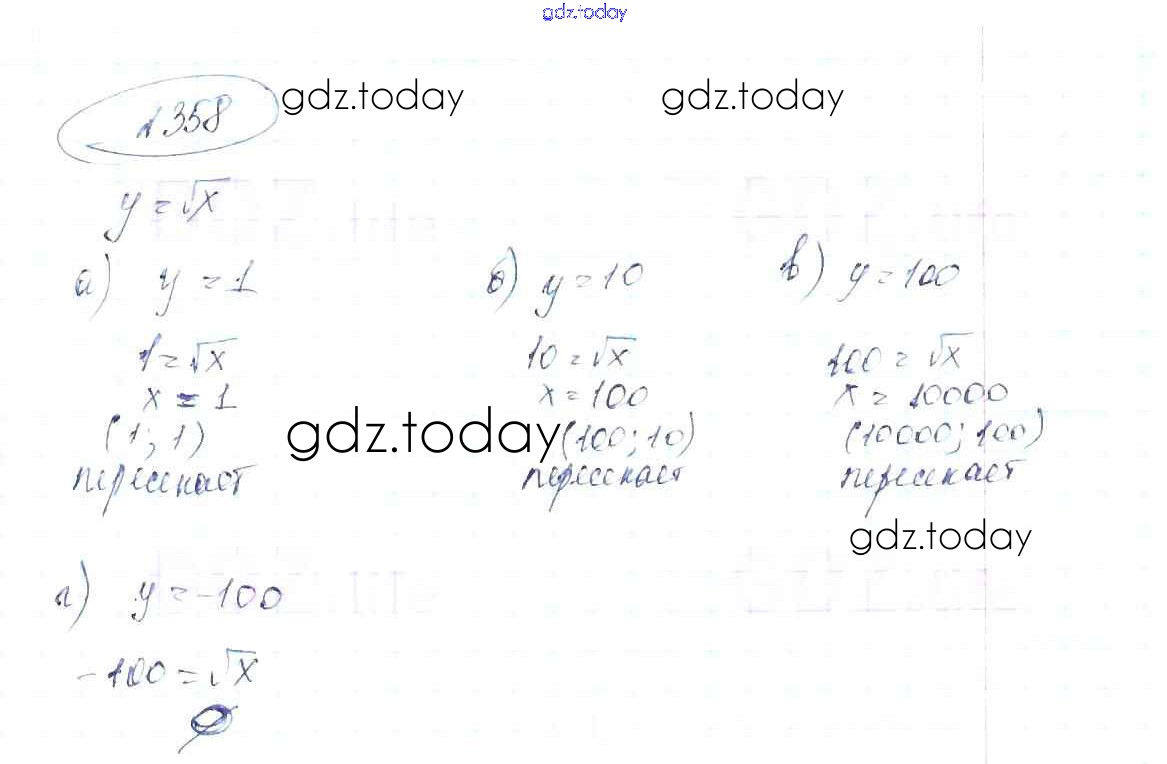 gdz.today
№358
gdz.today
gdz.today
y = √x
а) y = 1
1 = √x
x = 1
(1; 1)
пересекает
б) y = 10
10 = √x
x = 100
(100; 10)
пересекает
в) y = 100
100 = √x
x = 10000
(10000; 100)
пересекает
gdz.today
gdz.today
г) y = -100
-100 = √x
∅